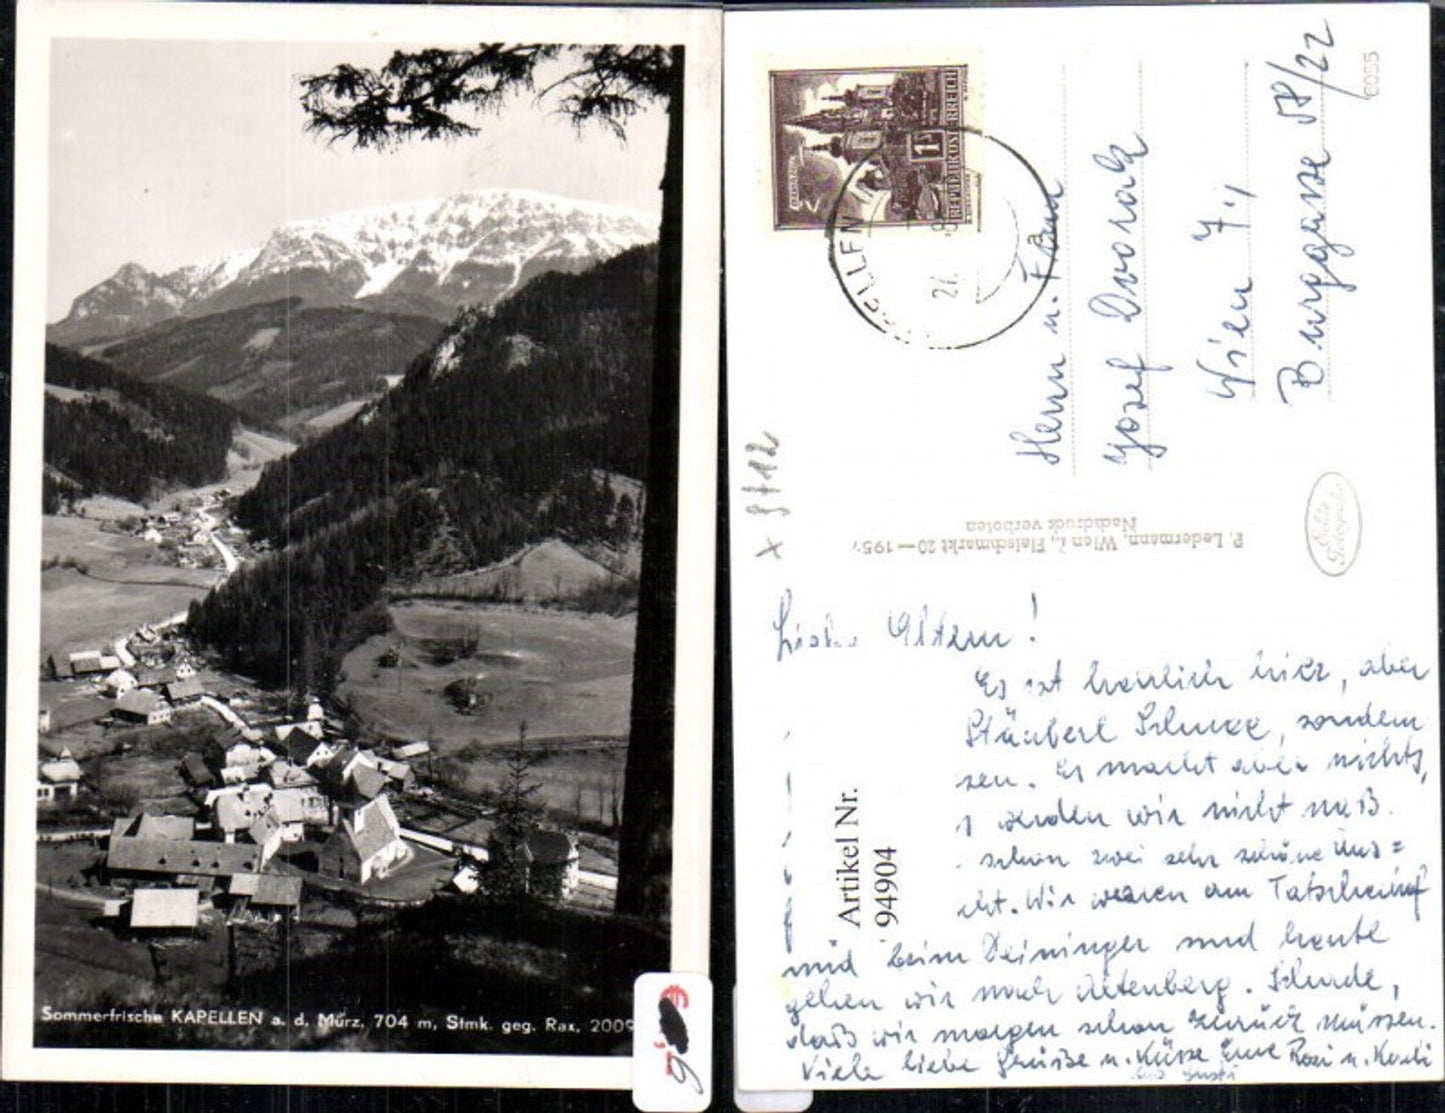 Sommerfrische KAPELLEN a. d. Mürz, 704 m, Stmk. geg. Rax, 2009
REPUBLIK ÖSTERREICH
1
27.
8055
Herrn u. Frau
Josef Dvorak
Wien 7.,
Burggasse 58/22
Echte Fotografie
P. Ledermann, Wien I., Fleischmarkt 20—195
Nachdruck verboten
Artikel Nr.
94904
Liebe Eltern!
Es ist herrlich hier, aber
Schnee, sondern
. Es macht aber nichts,
werden wir nicht naß.
schon zwei sehr schöne Aus=
. Wir waren am
und beim Deininger und heute
gehen wir nach Altenberg. Schade,
daß wir morgen schon zurück müssen.
Viele liebe Grüße u. Küsse Eure Rosi u.